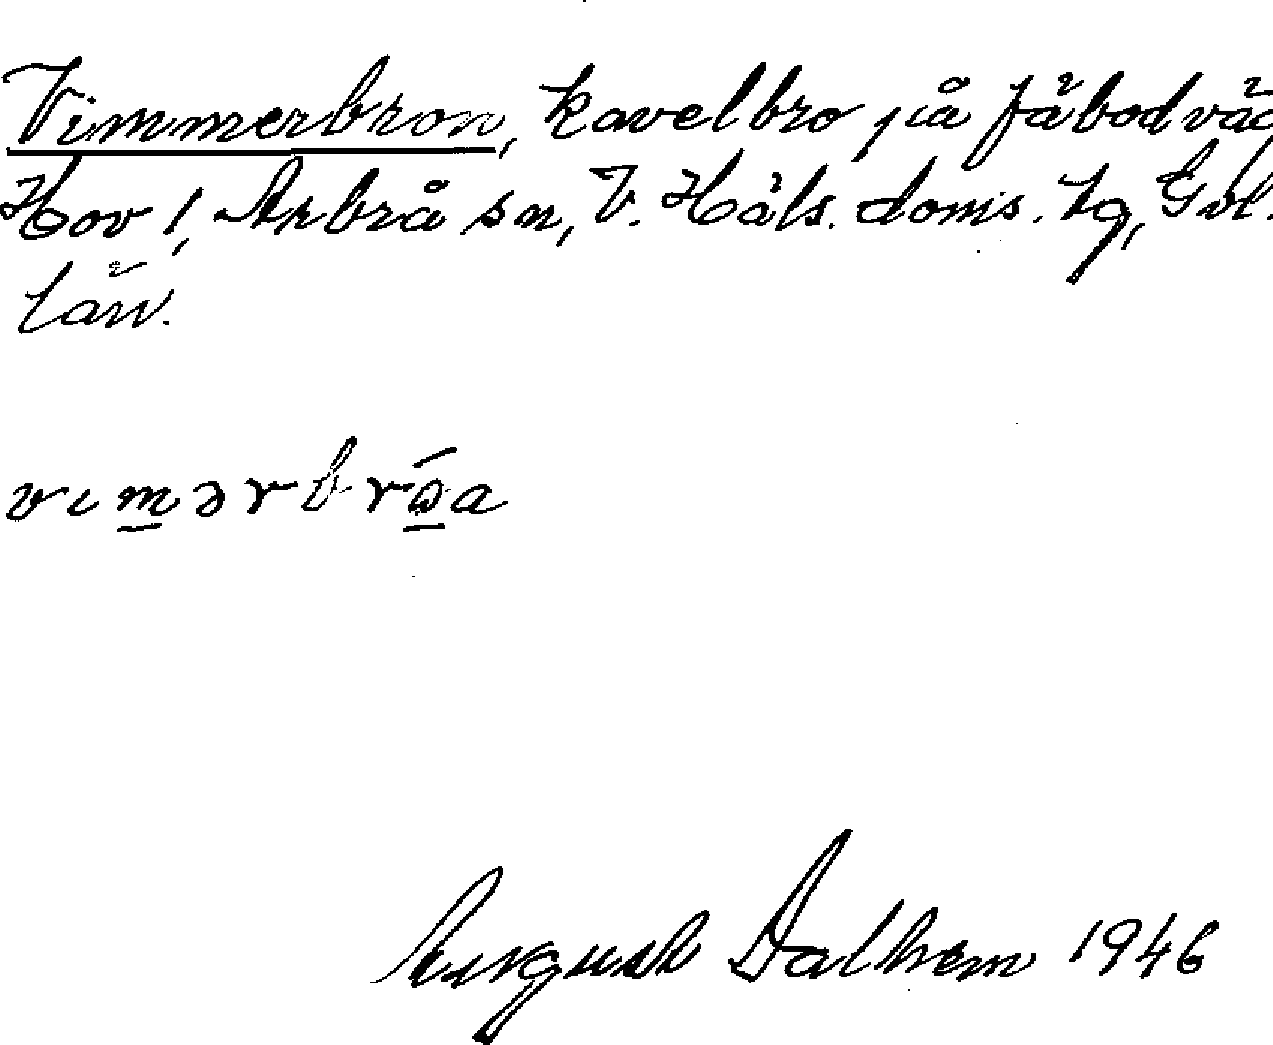 Vimmerbron, kavelbro på fäbodväg
Hov !, Arbrå sn, V. Häls. doms. tg, Gvl.
län.
vımərbrɷ́a
August Dalhem 1946